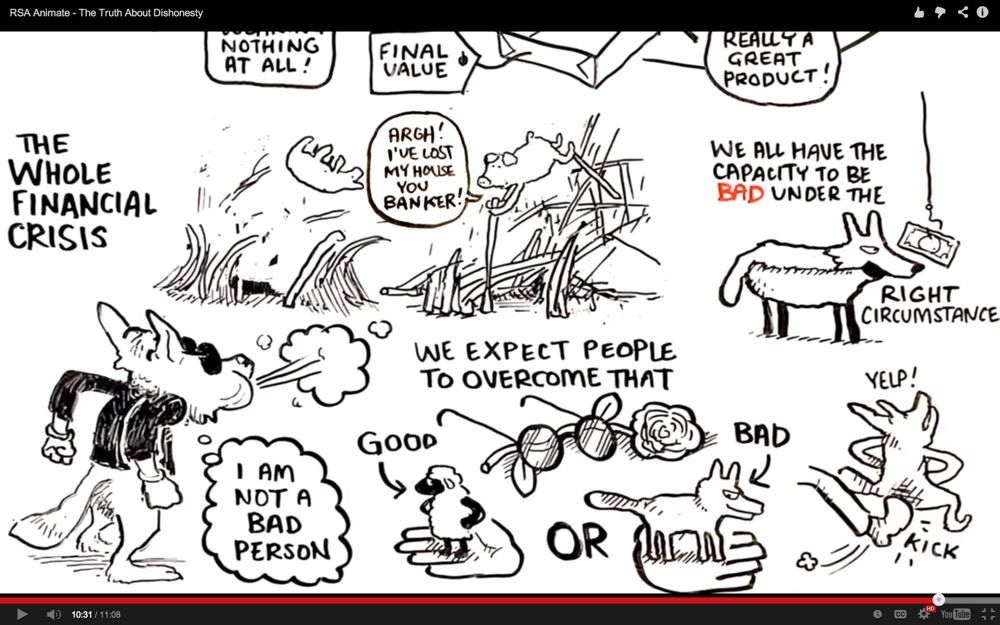 RSA Animate - The Truth About Dishonesty
NOTHING
AT ALL!
FINAL
VALUE
REALLY A
GREAT
PRODUCT!
THE
WHOLE
FINANCIAL
CRISIS
ARGH!
I'VE LOST
MY HOUSE
YOU
BANKER!
WE ALL HAVE THE
CAPACITY TO BE
BAD UNDER THE
RIGHT
CIRCUMSTANCE
WE EXPECT PEOPLE
TO OVERCOME THAT
YELP!
GOOD
BAD
I AM
NOT A
BAD
PERSON
OR
KICK
10:31 / 11:08
CC
HD
YouTube